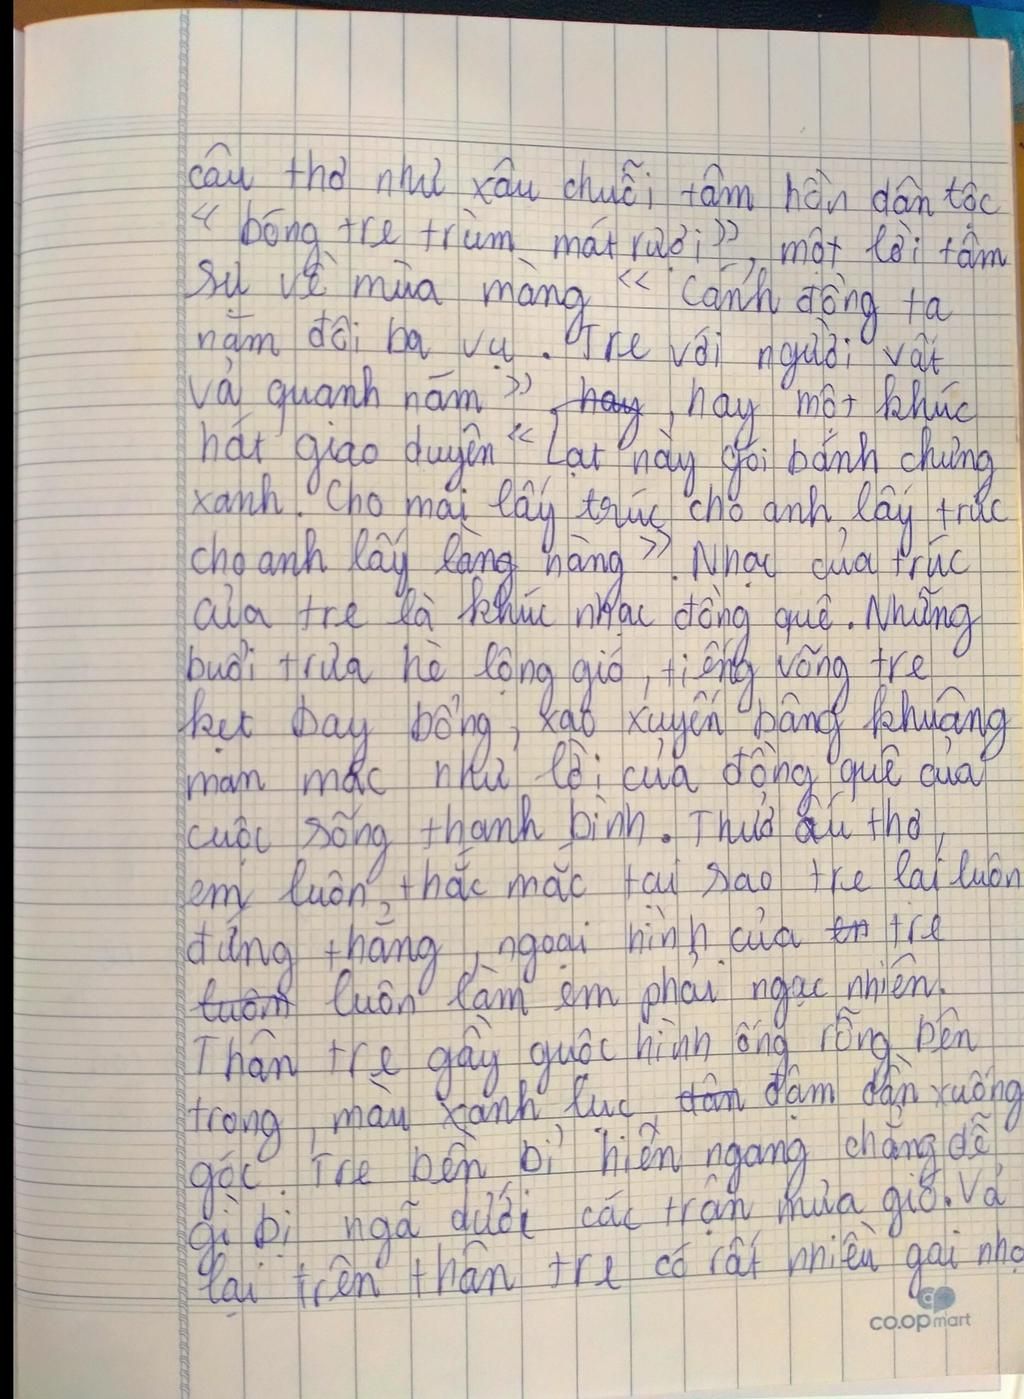 câu thơ như xâu chuỗi tâm hồn dân tộc
<< bóng tre trùm mát rượi >>, một lời tâm
sự về mùa màng << Cánh đồng ta
năm đôi ba vụ. Tre với người vất
vả quanh năm >> hay, hay một khúc
hát giao duyên << Lạt này gói bánh chưng
xanh. Cho mai lấy trúc cho anh lấy trúc
cho anh lấy làng nàng >>. Nhạc của trúc
của tre là khúc nhạc đồng quê. Những
buổi trưa hè lộng gió, tiếng võng tre
kẹt bay bổng, xao xuyến bâng khuâng
man mác như lời của đồng quê của
cuộc sống thanh bình. Thưở ấu thơ,
em luôn thắc mắc tại sao tre lại luôn
đứng thẳng, ngoại hình của en tre
luôn luôn làm em phải ngạc nhiên.
Thân tre gầy guộc hình ống rỗng bên
trong, màu xanh lục, đân đậm dần xuống
gốc. Tre bền bỉ hiên ngang chẳng dễ
gì bị ngã dưới các trận mưa gió. Vả
lại trên thân tre có rất nhiều gai nhọ
co.opmart